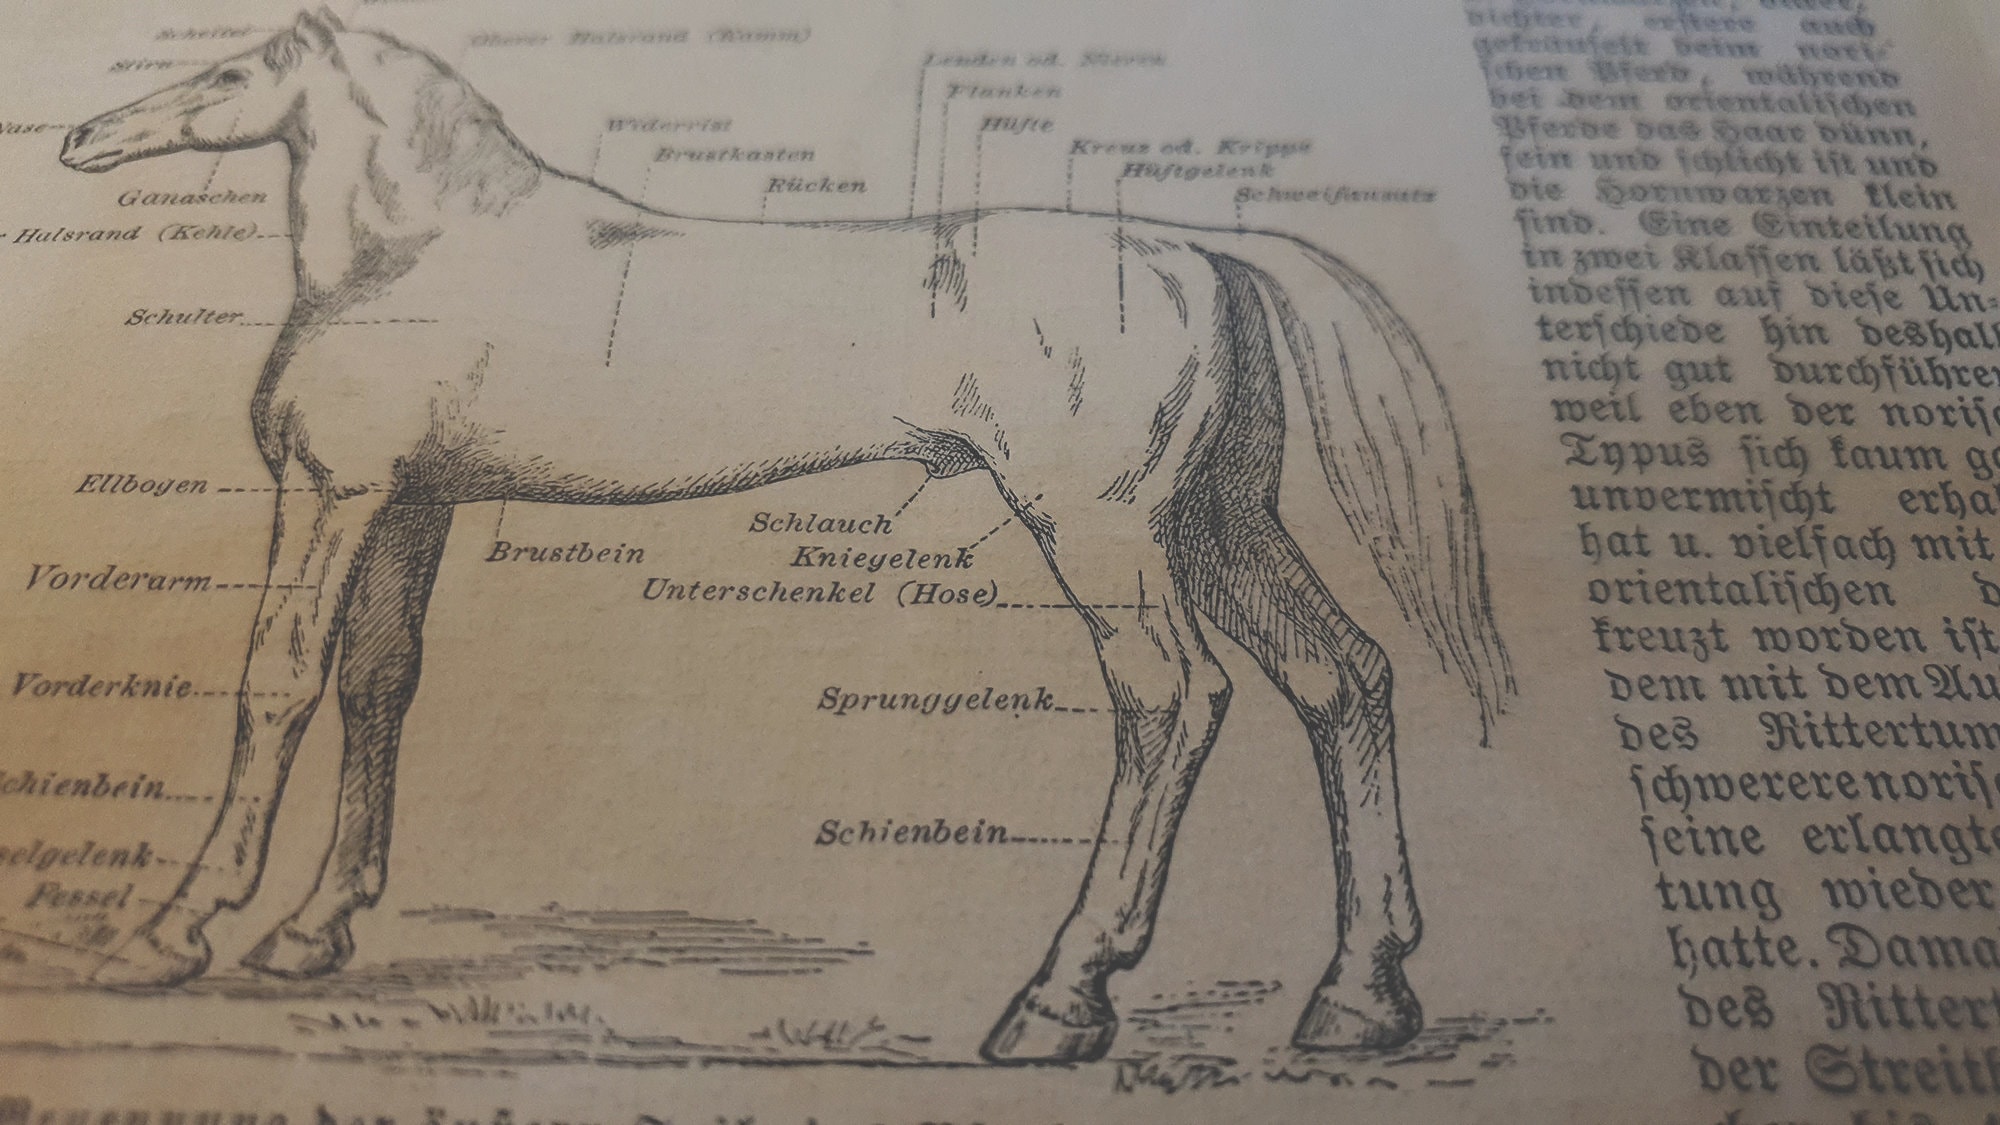 Scheitel
Stirn
Nase
Oberer Halsrand (Kamm)
Ganaschen
Halsrand (Kehle)
Schulter
Widerrist
Brustkasten
Rücken
Lenden od. Nieren
Flanken
Hüfte
Kreuz od. Kruppe
Hüftgelenk
Schweifansatz
Ellbogen
Vorderarm
Vorderknie
chienbein
selgelenk
Fessel
Brustbein
Schlauch
Kniegelenk
Unterschenkel (Hose)
Sprunggelenk
Schienbein
Benennung der äußern
dichter, erstere auch
gekräuselt beim nori-
schen Pferd, während
bei dem orientalischen
Pferde das Haar dünn,
fein und schlicht ist und
die Hornwarzen klein
sind. Eine Einteilung
in zwei Klassen läßt sich
indessen auf diese Un-
terschiede hin deshalb
nicht gut durchführe
weil eben der noris
Typus sich kaum g
unvermischt erha
hat u. vielfach mit
orientalischen
kreuzt worden ist
dem mit dem Au
des Rittertum
schwerere noris
seine erlangte
tung wieder
hatte. Dama
des Rittert
der Streit